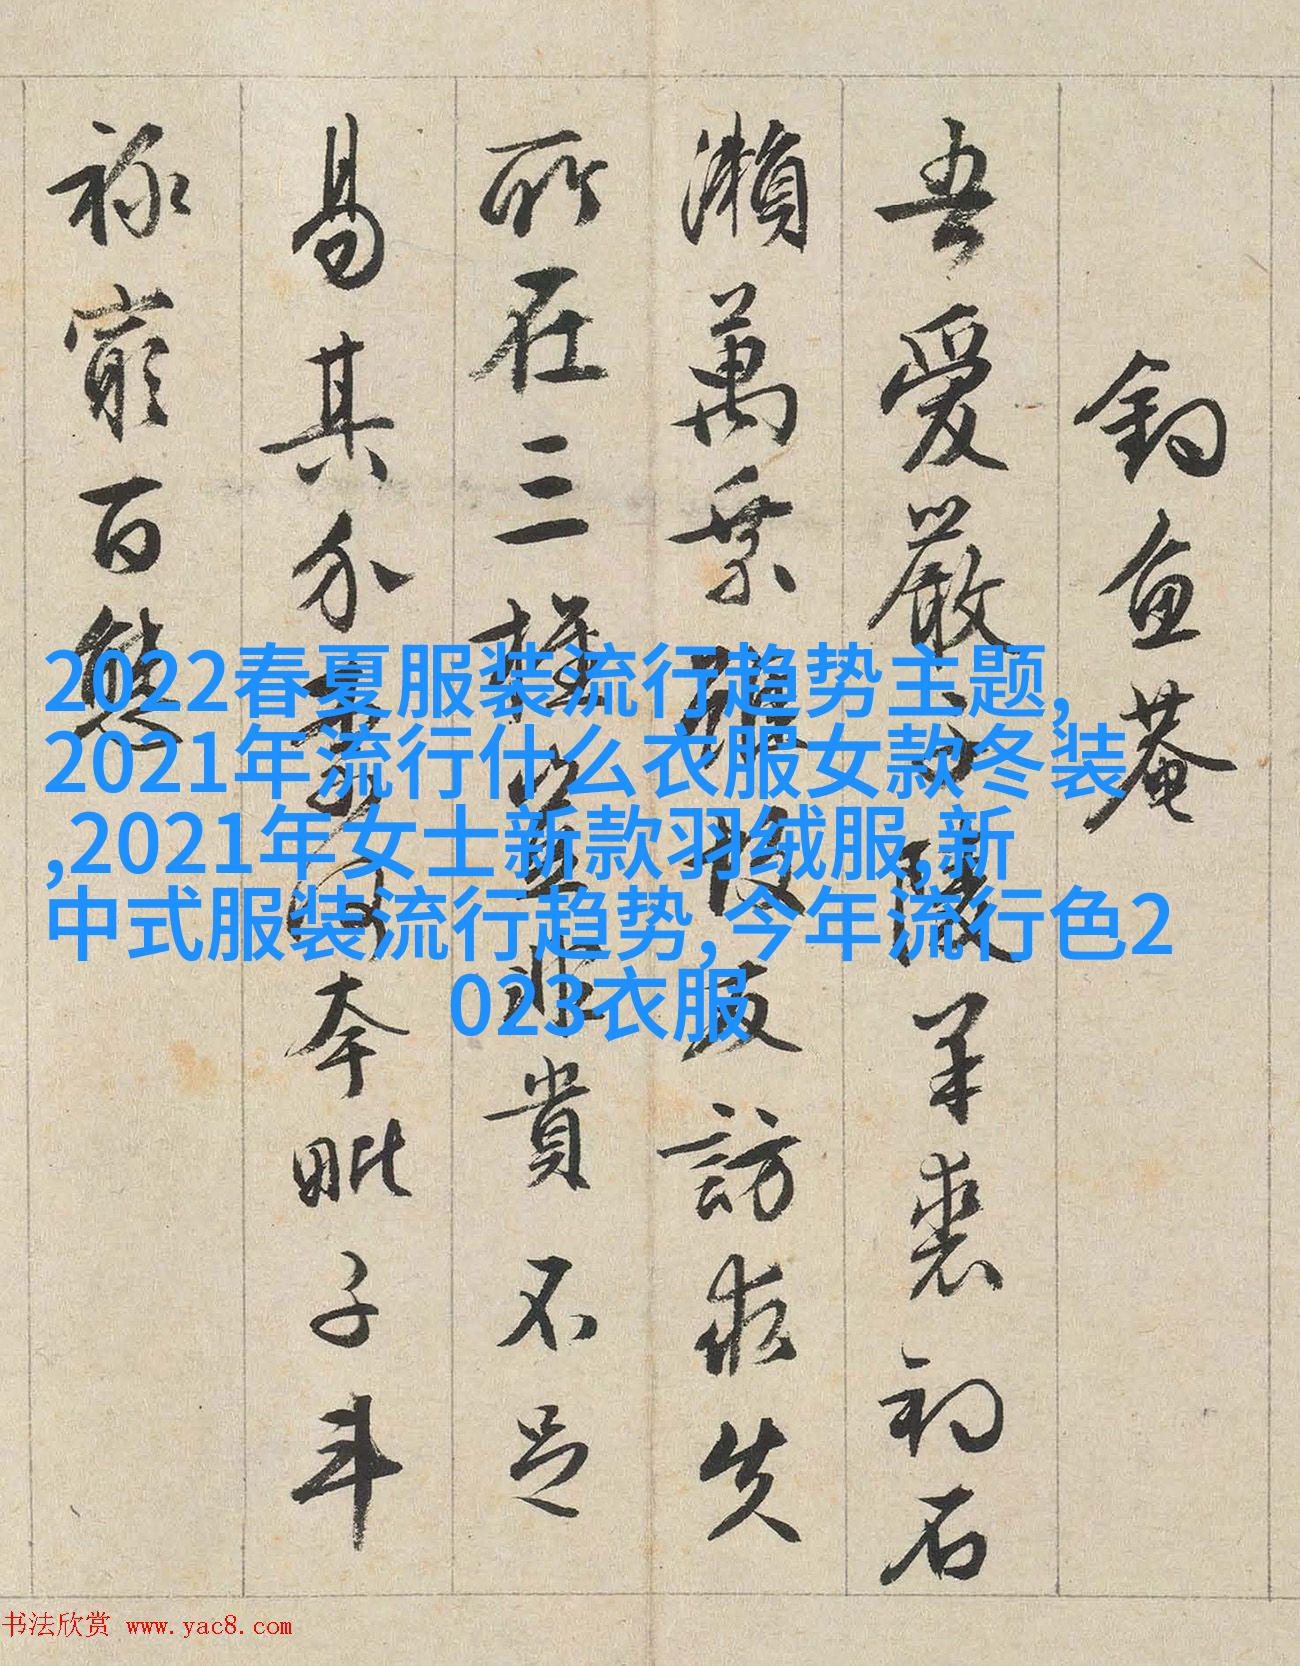 釣魚菴
吾愛嚴子陵羊裘初石
瀨萬乘雖故友訪求失
所在三旌豈非貴不足
易其介奈何夸毗子斗
祿窮百態
2022春夏服装流行趋势主题,
2021年流行什么衣服女款冬装
,2021年女士新款羽绒服,新
中式服装流行趋势,今年流行色2
023衣服
书法欣赏 www.yac8.com